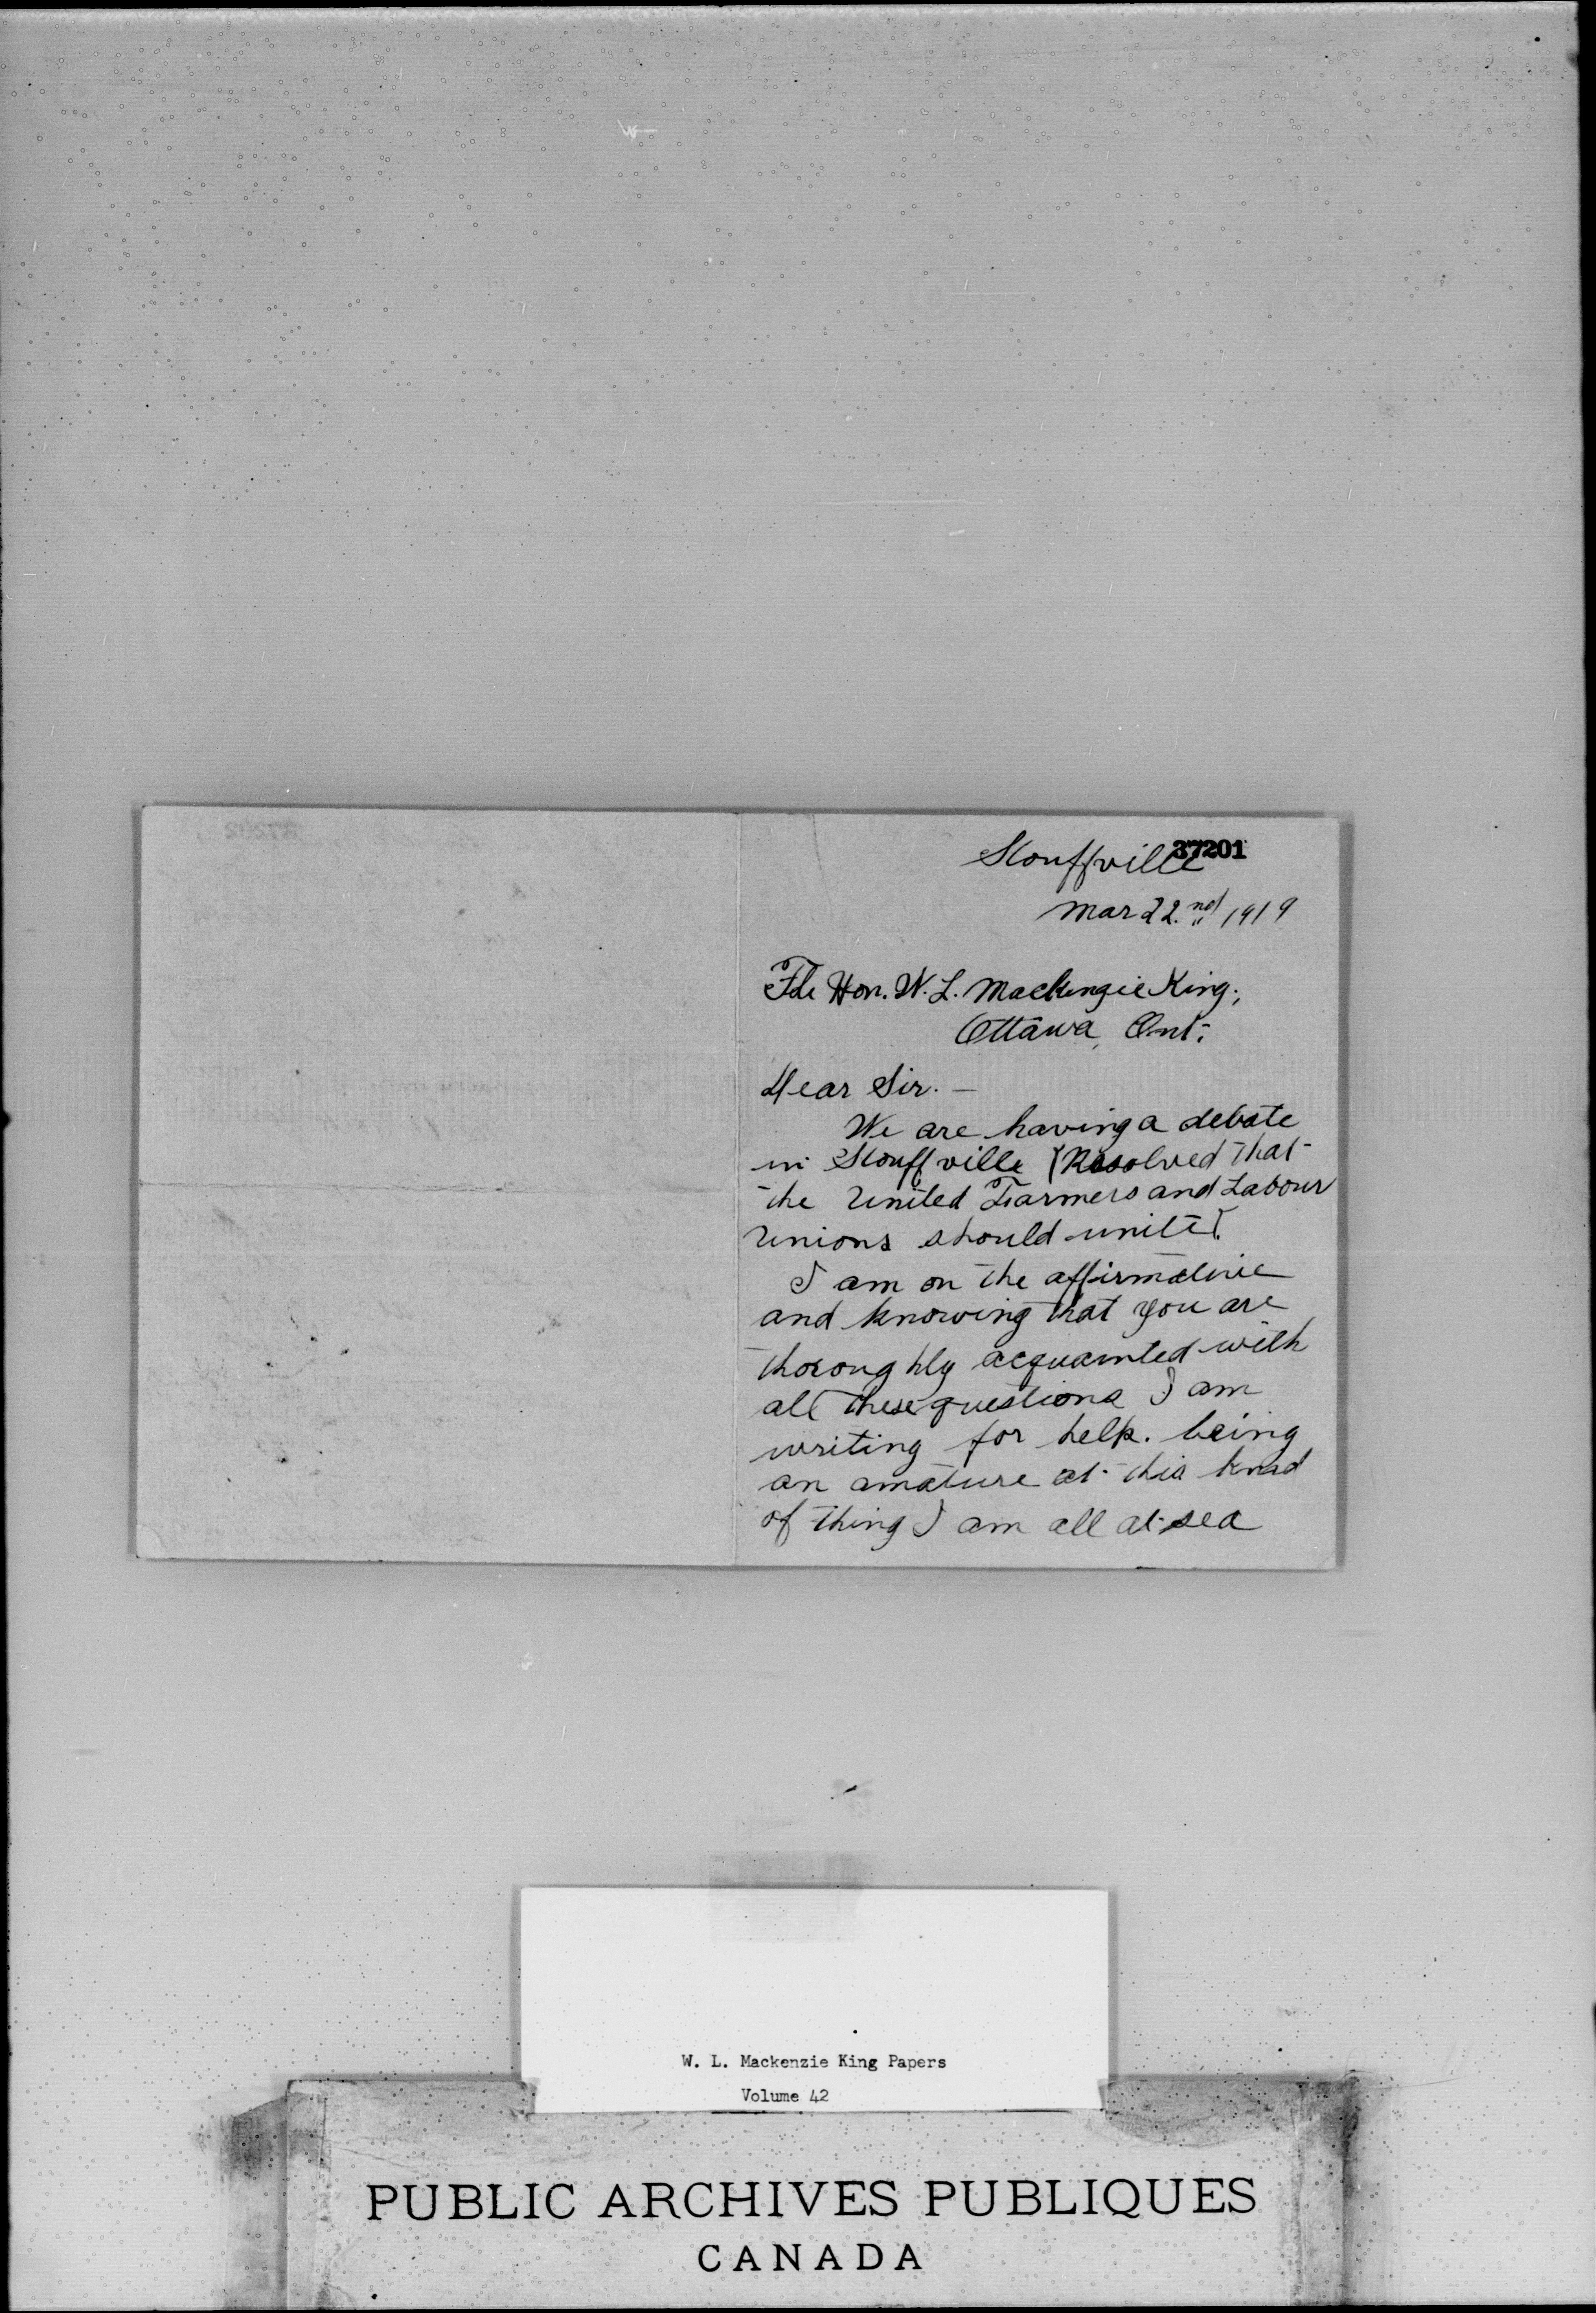 37201
Stouffville
Mar 22.nd 1919
The Hon. W. L. Mackenzie King;
Ottawa, Ont;
Dear Sir. —
We are having a debate
in Stouffville (Resolved that
the United Farmers and Labour
Unions should unite).
I am on the affirmative
and knowing that you are
thoroughly acquainted with
all these questions I am
writing for help. being
an amature at this kind
of thing I am all at sea
W. L. Mackenzie King Papers
Volume 42
PUBLIC ARCHIVES PUBLIQUES
CANADA